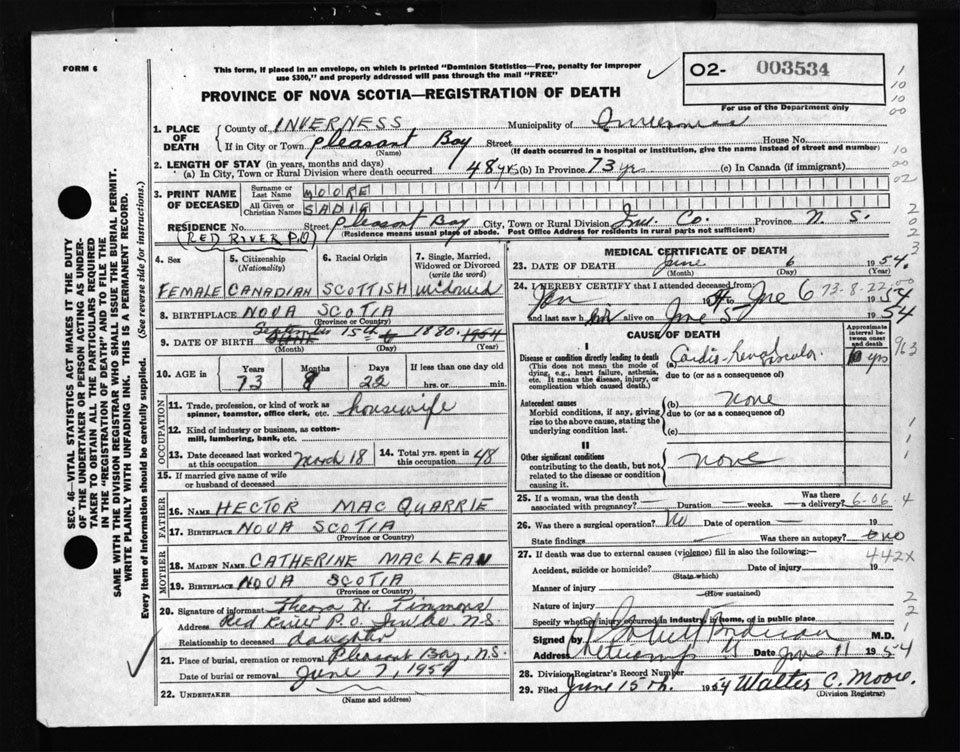 FORM 6
This form, if placed in an envelope, on which is printed "Dominion Statistics—Free, penalty for improper
use $300," and properly addressed will pass through the mail "FREE"
02- 003534
For use of the Department only
PROVINCE OF NOVA SCOTIA—REGISTRATION OF DEATH
1. PLACE OF DEATH
County of INVERNESS Municipality of Inverness
If in City or Town Pleasant Bay Street House No.
(Name) (If death occurred in a hospital or institution, give the name instead of street and number)
2. LENGTH OF STAY (in years, months and days)
(a) In City, Town or Rural Division where death occurred 48 yrs (b) In Province 73 yrs (c) In Canada (if immigrant)
3. PRINT NAME OF DECEASED
Surname or Last Name MOORE
All Given or Christian Names SADIE
RESIDENCE No. Street Pleasant Bay City, Town or Rural Division Inv. Co. Province N. S.
(RED RIVER P.O) (Residence means usual place of abode. Post Office Address for residents in rural parts not sufficient)
4. Sex
FEMALE
5. Citizenship
(Nationality)
CANADIAN
6. Racial Origin
SCOTTISH
7. Single, Married,
Widowed or Divorced
(write the word)
widowed
8. BIRTHPLACE NOVA SCOTIA
(Province or Country)
9. DATE OF BIRTH September 15th 1880. 1954
(Month) (Day) (Year)
10. AGE in Years Months Days If less than one day
73 8 22 hrs. or min.
OCCUPATION
11. Trade, profession, or kind of work as
spinner, teamster, office clerk, etc. housewife
12. Kind of industry or business, as cotton-
mill, lumbering, bank, etc.
13. Date deceased last worked
at this occupation March 18
14. Total yrs. spent in
this occupation 48
15. If married give name of wife
or husband of deceased
FATHER
16. NAME HECTOR MAC QUARRIE
17. BIRTHPLACE NOVA SCOTIA
(Province or Country)
MOTHER
18. MAIDEN NAME CATHERINE MACLEAN
19. BIRTHPLACE NOVA SCOTIA
(Province or Country)
20. Signature of informant Theora H. Timmons
Address Red River P.O. Inv. Co. N.S.
Relationship to deceased daughter
21. Place of burial, cremation or removal Pleasant Bay, N.S.
Date of burial or removal June 7, 1954
22. UNDERTAKER
(Name and address)
MEDICAL CERTIFICATE OF DEATH
23. DATE OF DEATH June 6 1954.
(Month) (Day) (Year)
24. I HEREBY CERTIFY that I attended deceased from:
Jan 19 54 to Jne 6 1954 73-8-22
and last saw h er alive on June 5 1954
CAUSE OF DEATH
Approximate interval between onset and death
I
Disease or condition directly leading to death
(This does not mean the mode of
dying, e.g., heart failure, asthenia,
etc. It means the disease, injury, or
complication which caused death.)
due to (or as a consequence of)
10 yrs
963
Antecedent causes
Morbid conditions, if any, giving
rise to the above cause, stating the
underlying condition last.
(b) none
due to (or as a consequence of)
(c)
II
Other significant conditions
contributing to the death, but not
related to the disease or condition
causing it.
none
25. If a woman, was the death
associated with pregnancy? — Duration — weeks. Was there a delivery?
6-06-4
26. Was there a surgical operation? No Date of operation — 19
State findings — Was there an autopsy? no
442X
27. If death was due to external causes (violence) fill in also the following:—
Accident, suicide or homicide? Date of injury 19
(State which)
Manner of injury
(How sustained)
Nature of injury
Specify whether injury occurred in industry, in home, or in public place
Signed by M.D.
Address Date June 11 1954
28. Division Registrar's Record Number
29. Filed June 15th. 1954 Walter C. Moore.
(Division Registrar)
SEC. 46—VITAL STATISTICS ACT MAKES IT THE DUTY
OF THE UNDERTAKER OR PERSON ACTING AS UNDER-
TAKER TO OBTAIN ALL THE PARTICULARS REQUIRED
IN THE "REGISTRATION OF DEATH" AND TO FILE THE
SAME WITH THE DIVISION REGISTRAR WHO SHALL ISSUE THE BURIAL PERMIT.
WRITE PLAINLY WITH UNFADING INK. THIS IS A PERMANENT RECORD.
Every item of information should be carefully supplied. (See reverse side for instructions.)